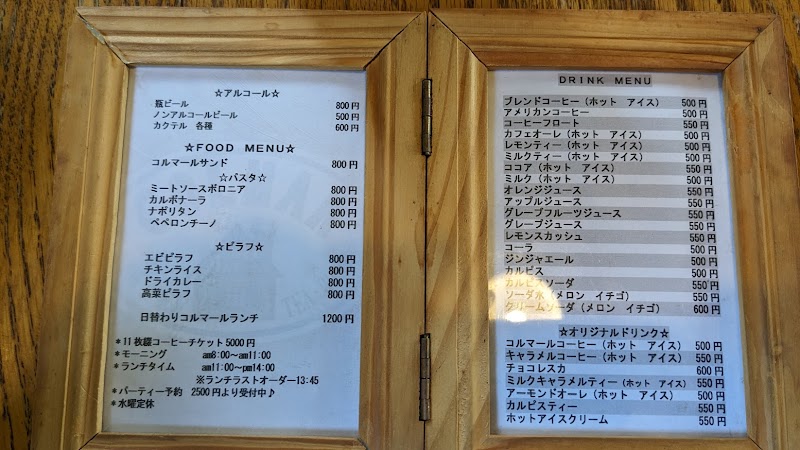 ☆アルコール☆
瓶ビール 800円
ノンアルコールビール 500円
カクテル 各種 600円
☆FOOD MENU☆
コルマールサンド 800円
☆パスタ☆
ミートソースボロニア 800円
カルボナーラ 800円
ナポリタン 800円
ペペロンチーノ 800円
☆ピラフ☆
エビピラフ 800円
チキンライス 800円
ドライカレー 800円
高菜ピラフ 800円
日替わりコルマールランチ 1200円
*11枚綴コーヒーチケット5000円
*モーニング am8:00~am11:00
*ランチタイム am11:00~pm14:00
※ランチラストオーダー13:45
*パーティー予約 2500円より受付中♪
*水曜定休
DRINK MENU
ブレンドコーヒー(ホット アイス) 500円
アメリカンコーヒー 500円
コーヒーフロート 550円
カフェオーレ(ホット アイス) 500円
レモンティー(ホット アイス) 500円
ミルクティー(ホット アイス) 500円
ココア(ホット アイス) 500円
ミルク(ホット アイス) 500円
オレンジジュース 550円
アップルジュース 550円
グレープフルーツジュース 550円
グレープジュース 550円
レモンスカッシュ 550円
コーラ 500円
ジンジャエール 500円
カルピス 500円
カルピスソーダ 550円
ソーダ水(メロン イチゴ) 550円
クリームソーダ(メロン イチゴ) 600円
☆オリジナルドリンク☆
コルマールコーヒー(ホット アイス) 500円
キャラメルコーヒー(ホット アイス) 550円
チョコレスカ 600円
ミルクキャラメルティー(ホット アイス) 550円
アーモンドオーレ(ホット アイス) 500円
カルピスティー 550円
ホットアイスクリーム 550円